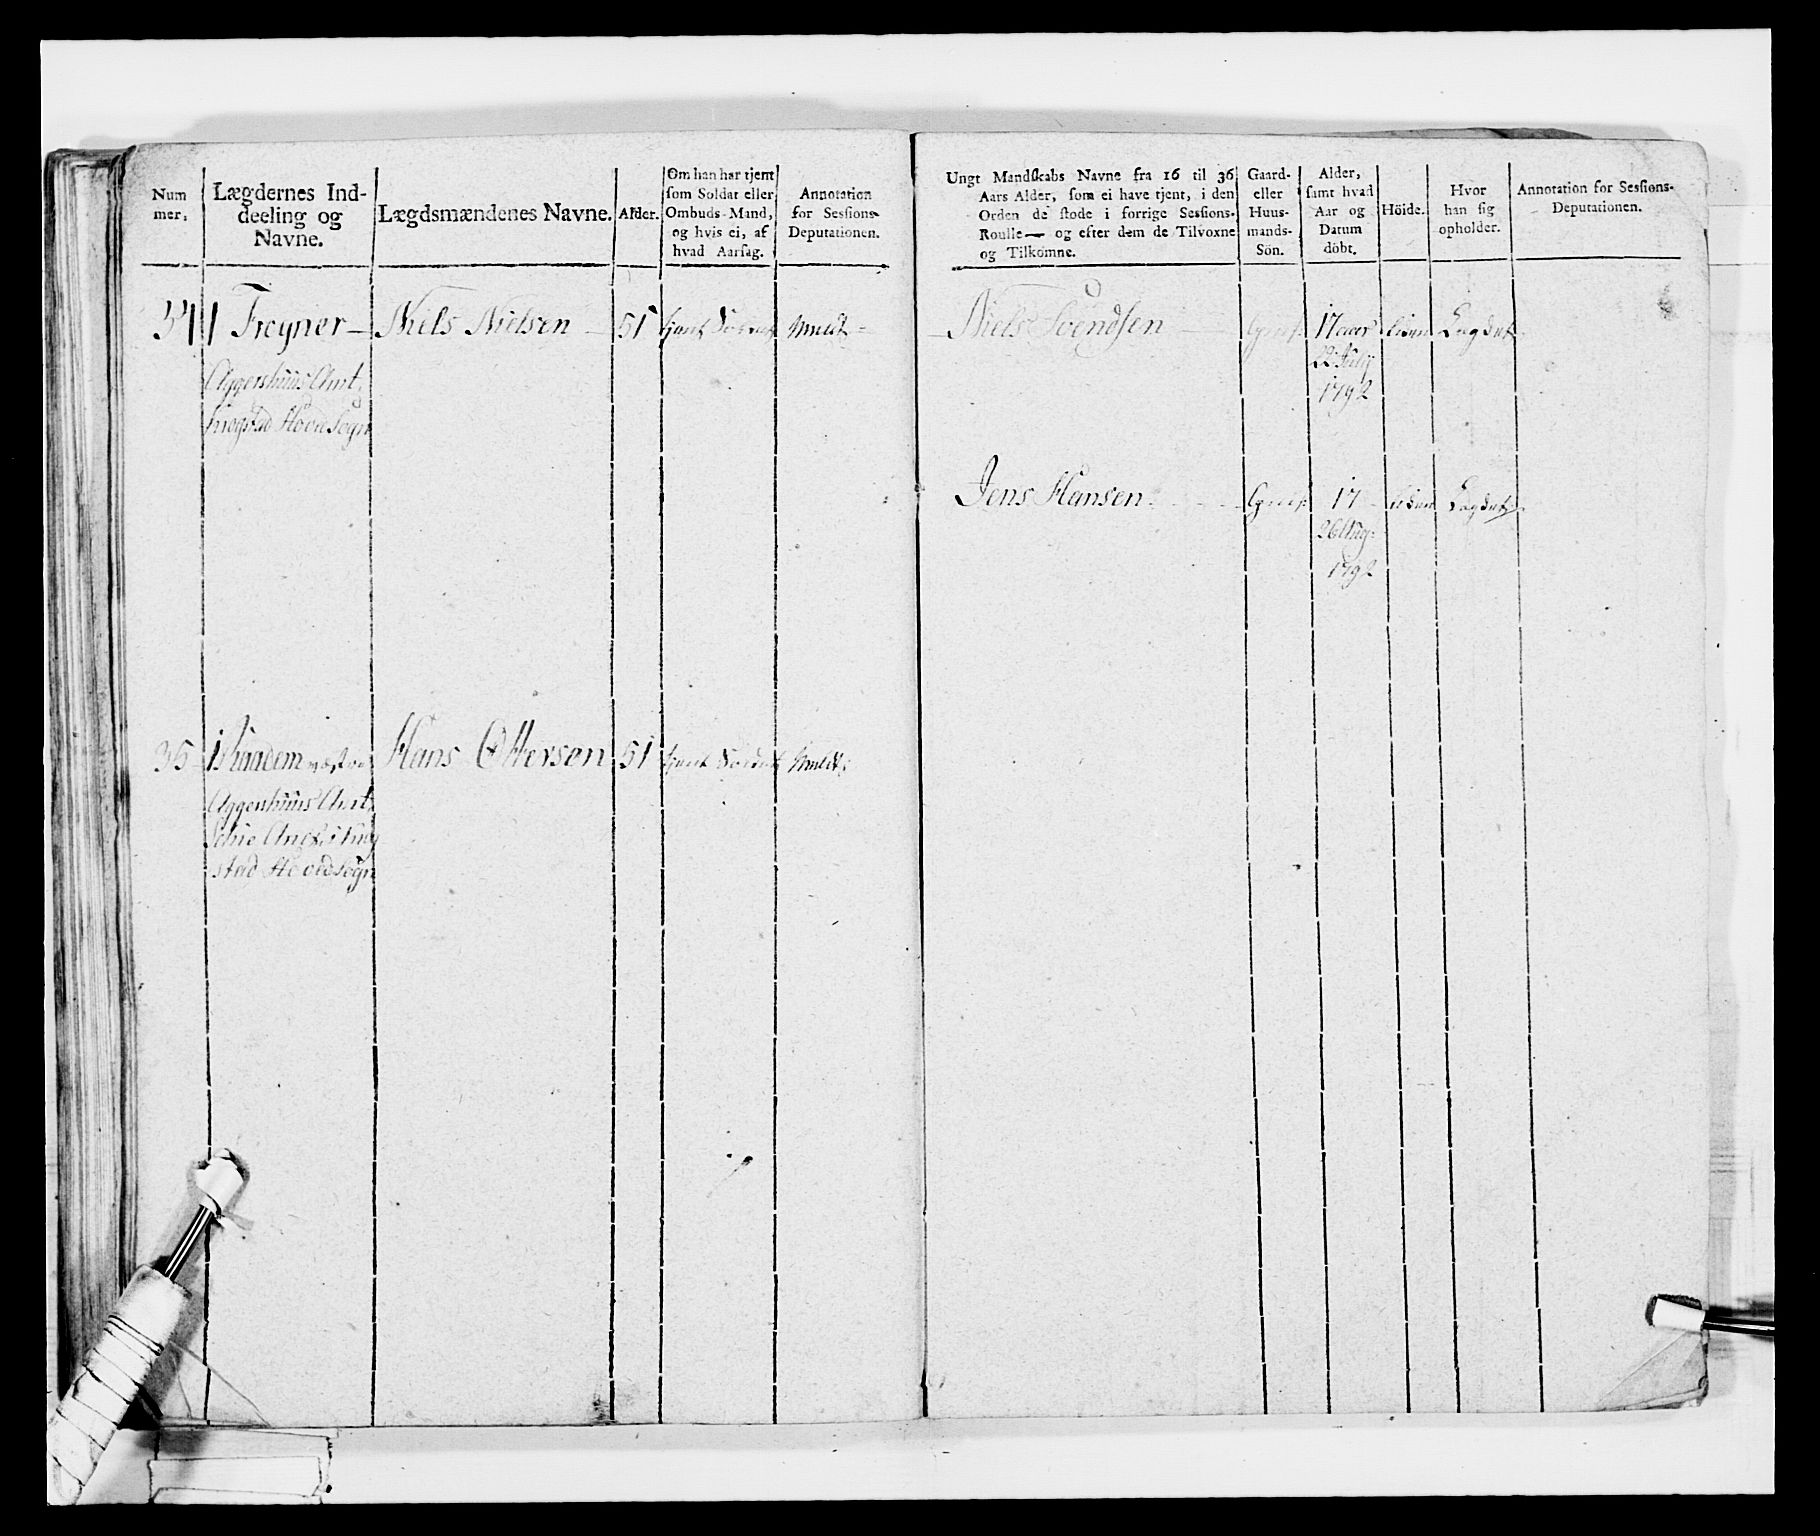 Num
mer.
Lægdernes Ind-
deeling og
Navne.
Lægdsmændenes Navne.
Alder.
Om han har tjent
som Soldat eller
Ombuds-Mand,
og hvis ei, af
hvad Aarsag.
Annotation
for Sessions-
Deputationen.
Ungt Mandskabs Navne fra 16 til 36
Aars Alder, som ei have tjent, i den
Orden de stode i forrige Sessions-
Roulle — og efter dem de Tilvoxne
og Tilkomne.
Gaard-
eller
Huus-
mands-
Sön.
Alder,
samt hvad
Aar og
Datum
döbt.
Höide.
Hvor
han sig
opholder.
Annotation for Sessions-
Deputationen.
34 1 Frogner — Niels Nielsen 51 tient Soldat
Aggershuus Amt,
Krogstad Hovd Sogn
Niels Svendsen 17 aar liden Lægdet
22 July
1792
Jens Hansen 17 liden Lægdet
26 Aug:
1792
35 1 Hans Ottersen 51 tient Soldat
Aggershuus Amt,
stad Hovedsogn